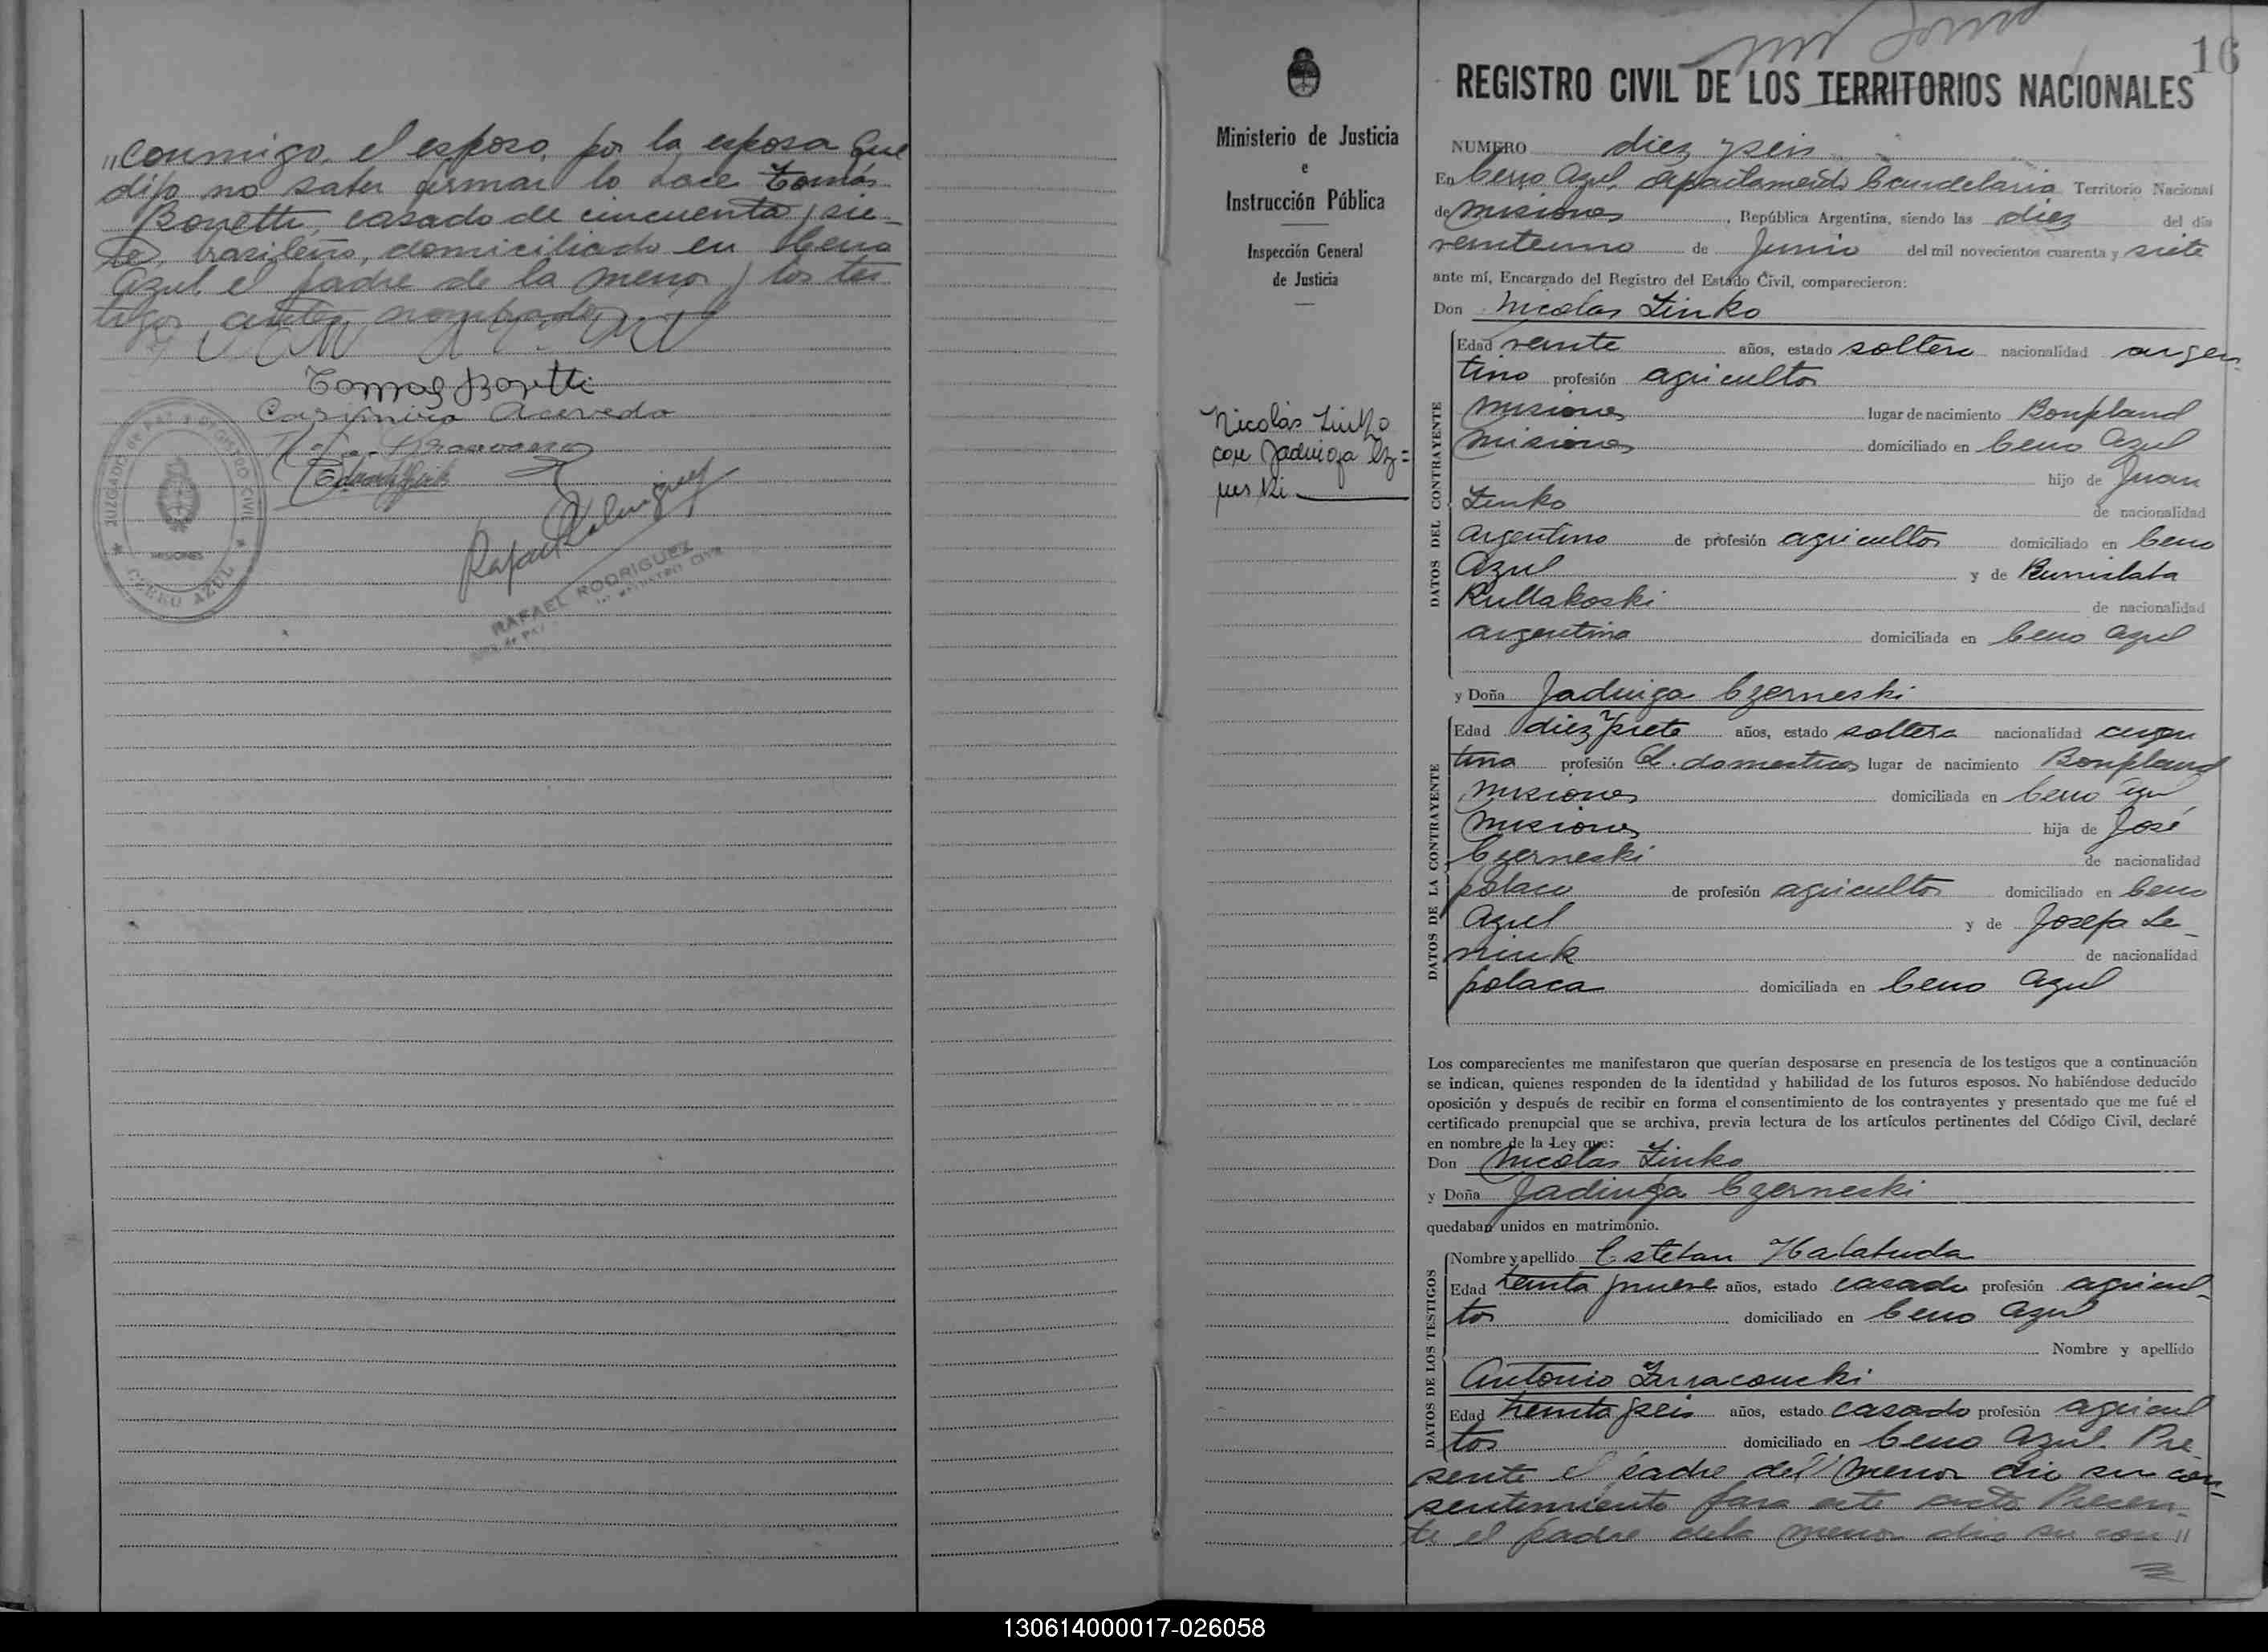 "conmigo, el esposo, por la esposa que
dijo no saber firmar lo hace Tomás
Bonetti, casado de cincuenta y sie-
te, brasileño, domiciliado en Cerro
Azul, el padre de la menor y los tes
tigos antes nombrados
Tomas Bonetti
Casimiro Acevedo
Rafael Rodriguez
RAFAEL RODRIGUEZ
JUZGADO DE PAZ Y REGISTRO CIVIL
MISIONES
CERRO AZUL
Ministerio de Justicia
e
Instrucción Pública
Inspección General
de Justicia
Nicolás Zinko
con Jadwiga Cz=
nes ki
16
REGISTRO CIVIL DE LOS TERRITORIOS NACIONALES
NUMERO diez y seis
En Cerro Azul, departamento Candelaria Territorio Nacional
de Misiones, República Argentina, siendo las diez del día
veintiuno de Junio del mil novecientos cuarenta y siete
ante mí, Encargado del Registro del Estado Civil, comparecieron:
Don Nicolas Zinko
DATOS DEL CONTRAYENTE
Edad veinte años, estado soltero nacionalidad argen
tino profesión agricultor
Misiones lugar de nacimiento Bonpland
Misiones domiciliado en Cerro Azul
hijo de Juan
Zinko de nacionalidad
Argentino de profesión agricultor domiciliado en Cerro
Azul y de
de nacionalidad
argentina domiciliada en Cerro Azul
y Doña Jadwiga Czerneski
DATOS DE LA CONTRAYENTE
Edad diez y siete años, estado soltera nacionalidad argen
tina profesión Q. domesticos lugar de nacimiento Bonpland
Misiones domiciliada en Cerro Azul
Misiones hija de José
Czerneski de nacionalidad
polaco de profesión agricultor domiciliado en Cerro
Azul y de Josefa Le-
niuk de nacionalidad
polaca domiciliada en Cerro Azul
Los comparecientes me manifestaron que querían desposarse en presencia de los testigos que a continuación
se indican, quienes responden de la identidad y habilidad de los futuros esposos. No habiéndose deducido
oposición y después de recibir en forma el consentimiento de los contrayentes y presentado que me fué el
certificado prenupcial que se archiva, previa lectura de los artículos pertinentes del Código Civil, declaré
en nombre de la Ley que:
Don Nicolas Zinko
y Doña Jadwiga Czerneski
quedaban unidos en matrimonio.
DATOS DE LOS TESTIGOS
Nombre y apellido Esteban Halabuda
Edad treinta y nueve años, estado casado profesión agricul-
tor domiciliado en Cerro Azul
Nombre y apellido
Antonio
Edad treinta y seis años, estado casado profesión agricul
tor domiciliado en Cerro Azul. Pre
sente el padre del menor dio su con-
sentimiento para este acto. Presen-
te el padre de la menor dio su con "
130614000017-026058